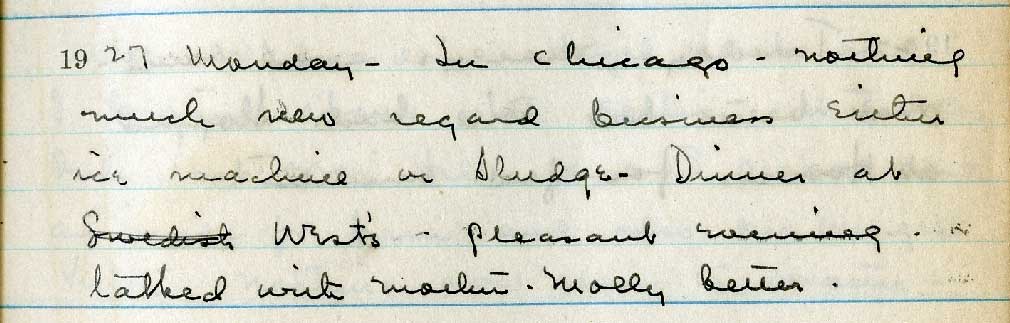 1927 Monday - In Chicago - nothing
much new regard business Either
ice machine or Sludge - Dinner at
Swedish West's - pleasant evening.
talked with Mother. Molly better.